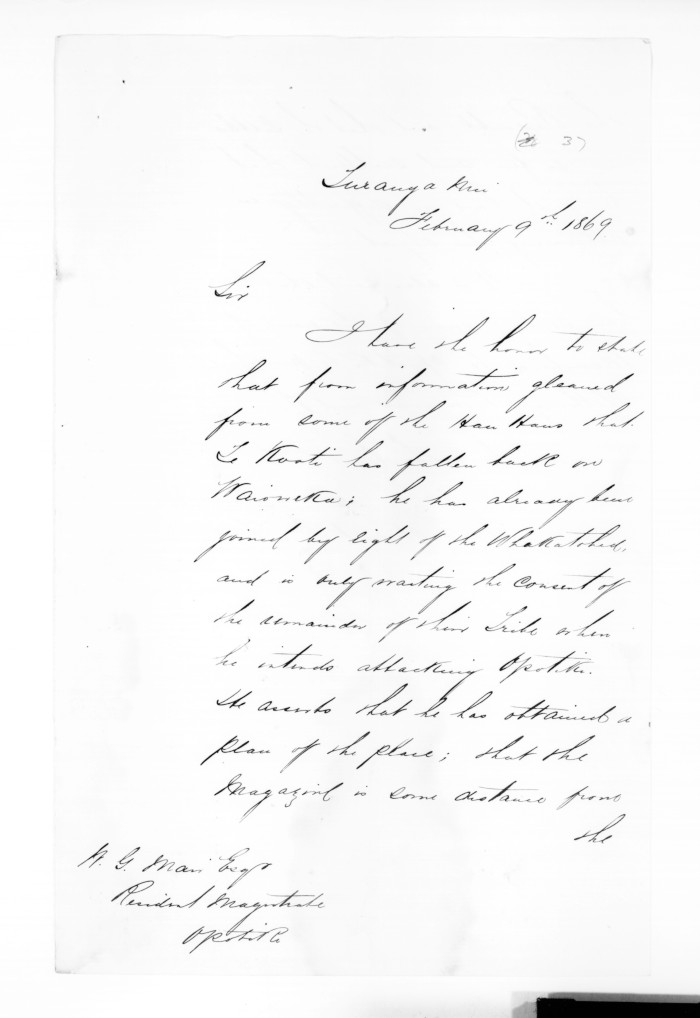 37
Turanga Nui
February 9th 1869
Sir
I have the honor to state
that from information gleaned
from some of the Hau Haus that
Te Kooti has fallen back on
Waioweka; he has already been
joined by eight of the Whakatohea,
and is only waiting the consent of
the remainder of their Tribe when
he intends attacking Opotiki.
He asserts that he has obtained a
plan of the place; that the
Magazine is some distance from
the
W. G. Mair Esqr
Resident Magistrate
Opotiki